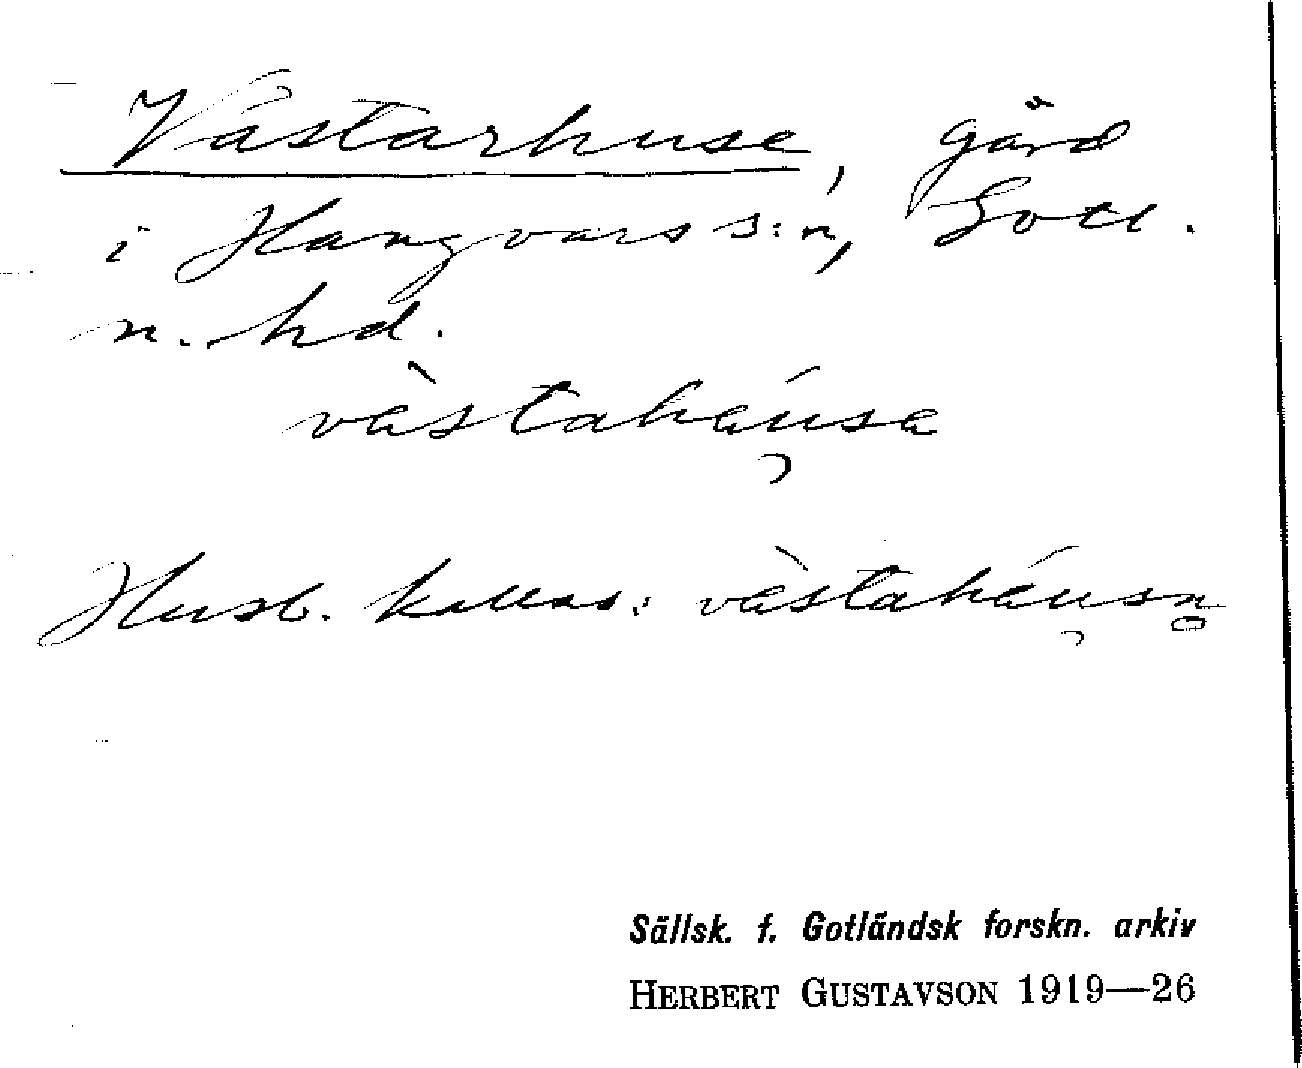 Västarhuse, gård
i Hangvars s:n, Gotl.
n. hd.
västaháusa
Husb. kallas: västaháusn
Sällsk. f. Gotländsk forskn. arkiv
HERBERT GUSTAVSON 1919—26